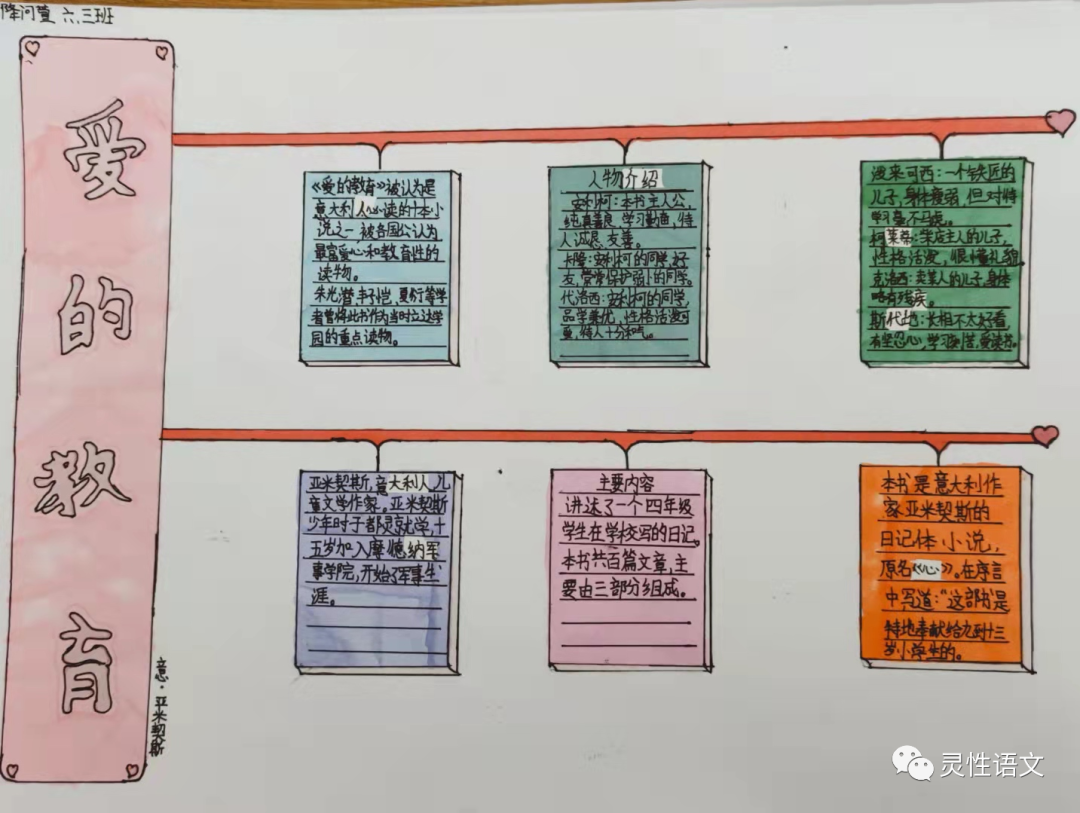 降问萱 六.三班
爱的教育
意·亚米契斯
《爱的教育》被认为是
意大利人必读的十本小
说之一,被各国公认为
最富爱心和教育性的
读物。
朱光潜,丰子恺,夏衍等学
者曾将此书作为当时立达学
园的重点读物。
人物介绍
安利柯:本书主人公,
纯真善良,学习勤奋,待
人诚恳、友善。
卡隆:安利柯的同学,好
友,常常保护弱小的同学。
代洛西:安利柯的同学,
品学兼优,性格活泼可
爱,待人十分和气。
泼来可西:一个铁匠的
儿子,身体瘦弱,但对待
学习毫不马虎。
柯莱蒂:柴店主人的儿子,
性格活泼,很懂礼貌。
克洛西:卖菜人的儿子,身体
略有残疾。
斯代地:长相不太好看,
有坚忍心,学习刻苦,爱读书。
亚米契斯,意大利人,儿
童文学作家。亚米契斯
少年时于都灵就学,十
五岁加入摩德纳军
事学院,开始了军事生
涯。
主要内容
讲述了一个四年级
学生在学校写的日记。
本书共百篇文章,主
要由三部分组成。
本书是意大利作
家亚米契斯的
日记体小说,
原名《心》。在序言
中写道:“这部书是
特地奉献给九到十三
岁小学生的。
灵性语文